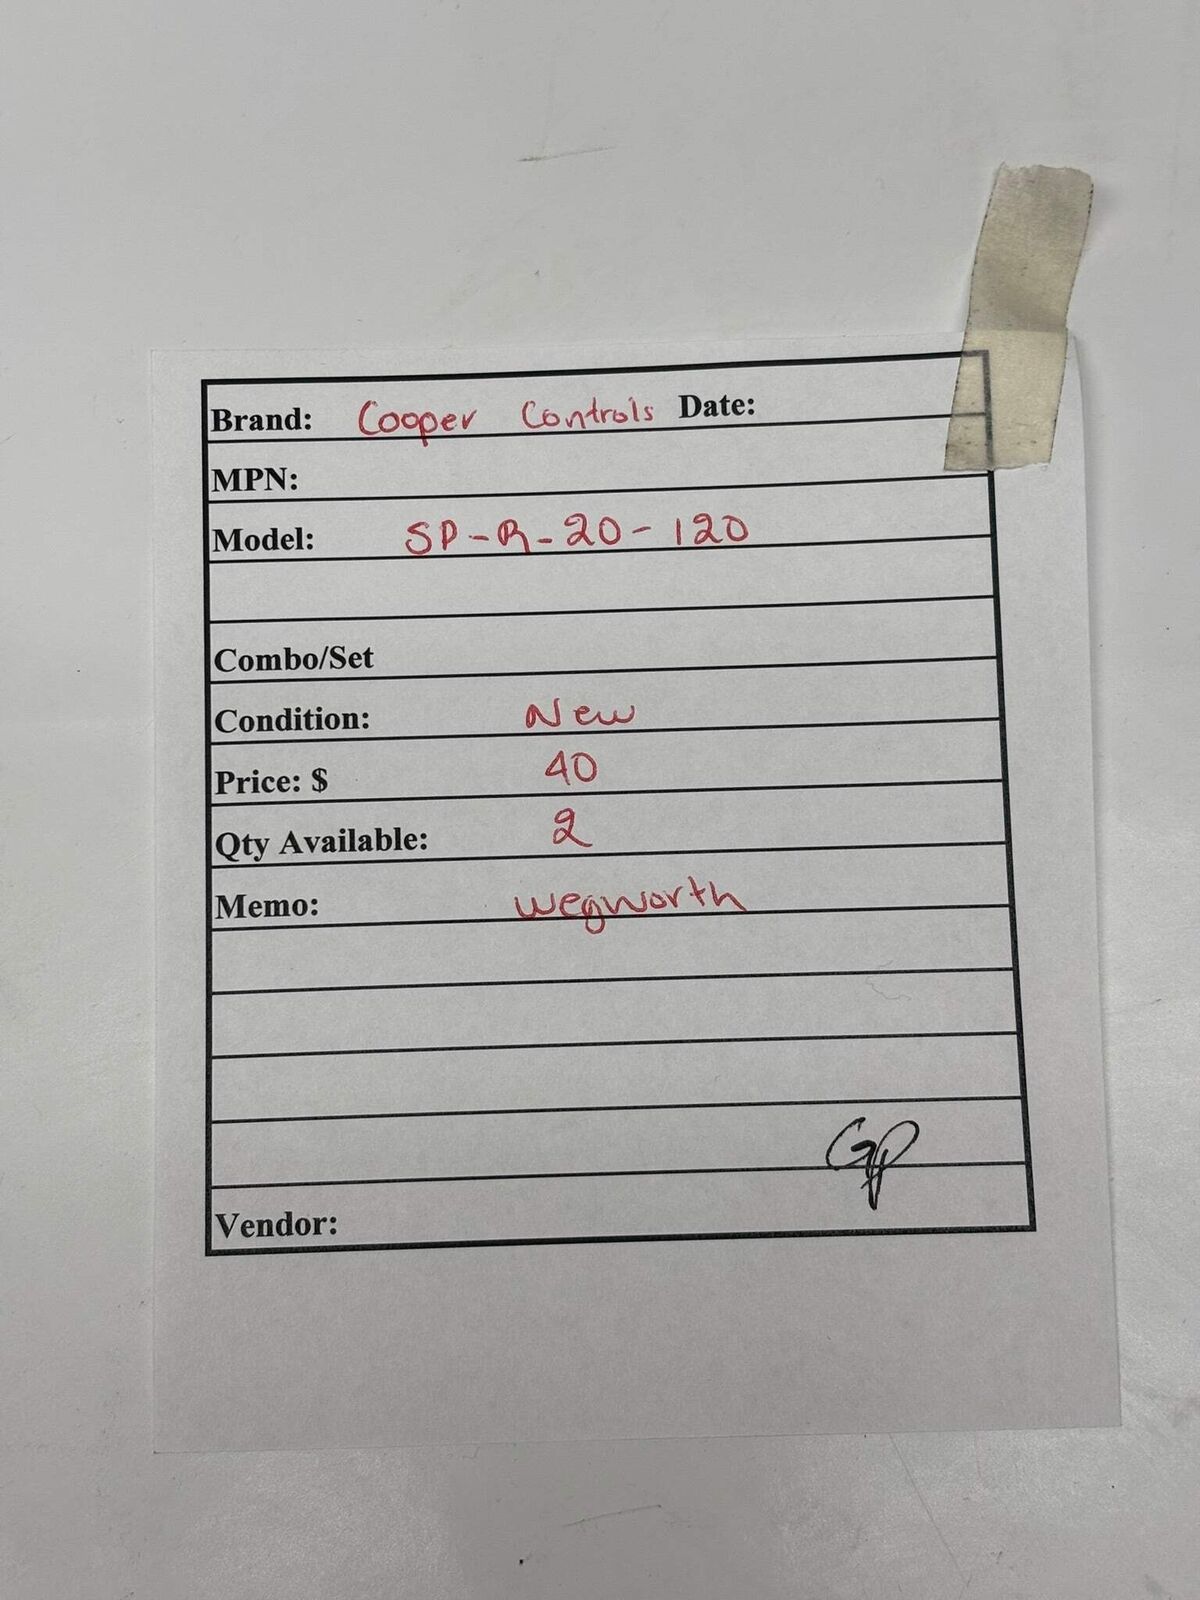 Brand: Cooper Controls Date:
MPN:
Model: SP-R-20-120
Combo/Set
Condition: New
Price: $ 40
Qty Available: 2
Memo: wegworth
GP
Vendor: